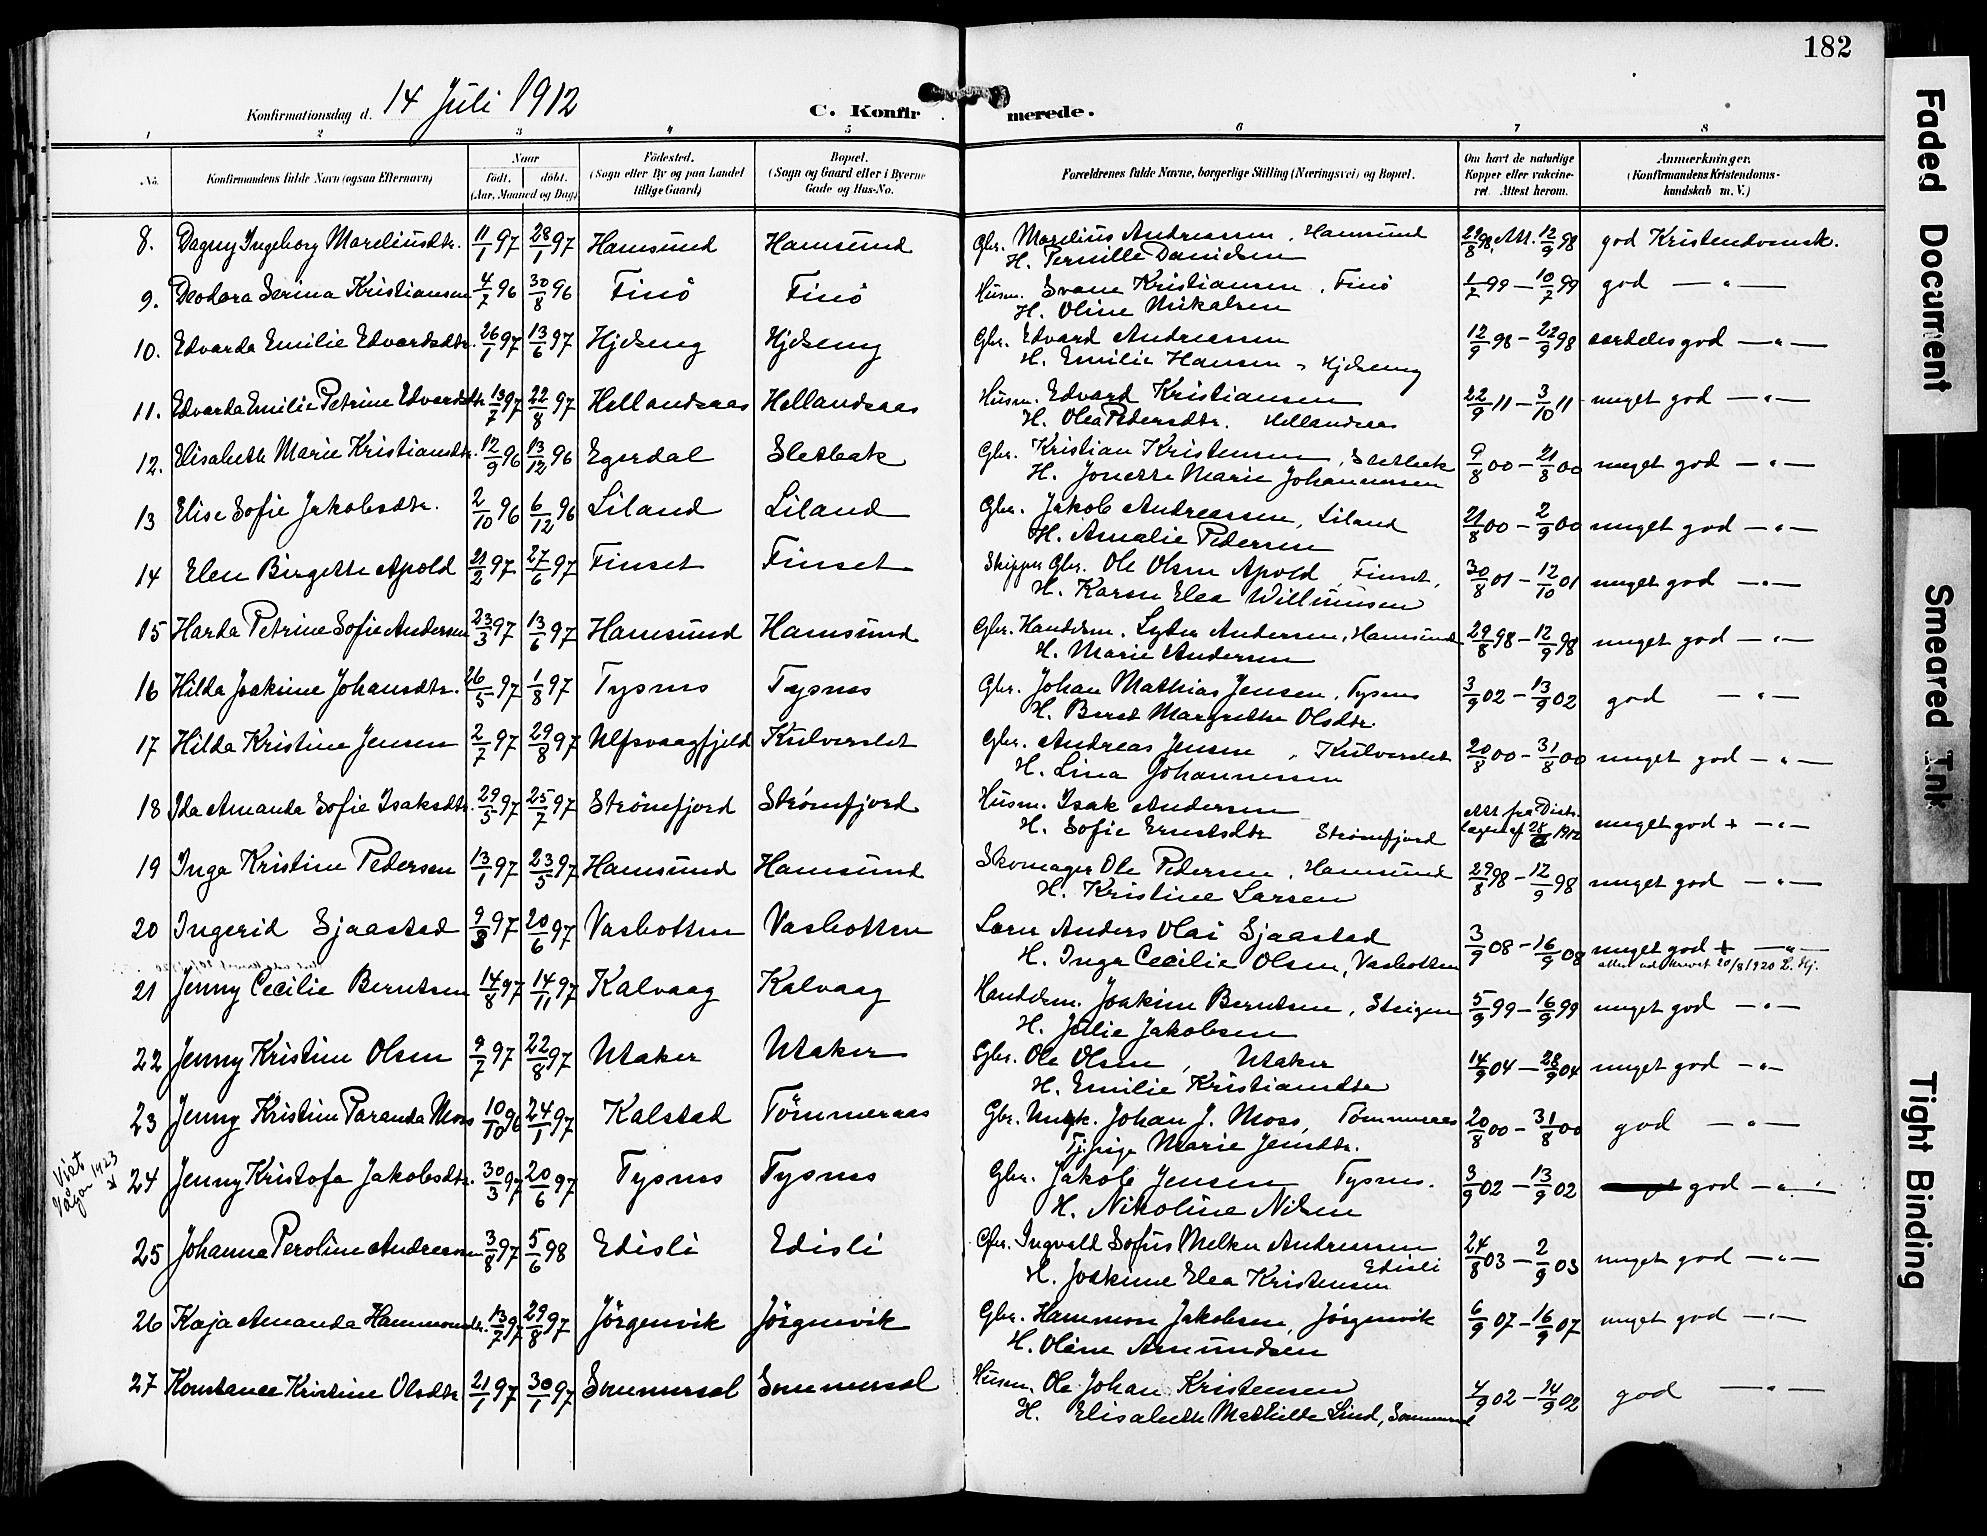 182
Konfirmationsdag d. 14 Juli 1912
C. Konfirmerede.
1 2 3 4 5 6 7 8
No. Konfirmandens fulde Navn (ogsaa Efternavn) Naar født. døbt. (Aar, Maaned og Dag) Fødested. (Sogn eller By og paa Landet tillige Gaard) Bopæl. (Sogn og Gaard eller i Byerne Gade og Hus-No. Forældrenes fulde Navne, borgerlige Stilling (Næringsvei) og Bopæl. Om havt de naturlige Kopper eller vaccineret. Attest herom. Anmærkninger. (Konfirmandens Kristendomskundskab m. V.)
8. Dagny Ingeborg Mareliusdtr. 11/1 97 28/1 97 Hamsund Hamsund Gbr. Marelius Andreassen, Hamsund 29/8 98. Att. 12/9 98 god Kristendomsk.
H. Pernille Danielsen
9. Deodora Serina Kristiansen 4/7 96 30/8 96 Finö Finö Husm. Svane Kristiansen, Finö 1/7 99 — 10/7 99 god — " —
H. Oline Mikalsen
10. Edvarda Emilie Edvardsdtr. 26/1 97 13/6 97 Hjelseng Hjelseng Gbr. Edvard Andreassen 12/9 98 — 22/9 98 særdeles god — " —
H. Emilie Hansen, Hjelseng
11. Edvarda Emilie Petrine Edvardsdtr 13/7 97 22/8 97 Hellandsaas Hellandsaas Husm. Edvard Kristiansen 22/9 11 — 3/10 11 meget god — " —
H. Olea Pedersdtr. Hellandsaas
12. Elisabeth Marie Kristiansdtr. 12/9 96 13/12 96 Egerdal Sletbak Gbr. Kristian Kristensen, Sletbak 9/8 00 — 21/8 00 meget god — " —
H. Jonette Marie Johannessen
13 Elise Sofie Jakobsdtr. 2/10 96 6/12 96 Liland Liland Gbr. Jakob Andreassen, Liland 21/8 00 — 2/9 00 meget god — " —
H. Amalie Pedersen
14 Elen Birgette Apold 21/2 97 27/6 97 Finset Finset Skipper Gbr. Ole Olsen Apold, Finset, 30/8 01 — 12/10 01 meget god — " —
H. Karen Elea Willumsen
15 Harda Petrine Sofie Andersen 23/3 97 13/6 97 Hamsund Hamsund Gbr. Handelsm. Lyder Andersen, Hamsund 29/8 98 — 12/9 98 meget god — " —
H. Marie Andersen
16 Hilda Joakime Johansdtr. 26/5 97 1/8 97 Tysnes Tysnes Gbr. Johan Mathias Jensen, Tysnes 3/9 02 — 13/9 02 god — " —
H. Beret Margrethe Olsdtr.
17 Hilda Kristine Jensen 2/7 97 29/8 97 Ulfsvaagfjeld Kulverslet Gbr. Andreas Jensen, Kulverslet 20/8 00 — 31/8 00 meget god — " —
H. Lina Johannessen
18 Ida Amanda Sofie Isaksdtr. 29/5 97 25/7 97 Strömfjord Strömfjord Husm. Isak Andersen Att. fra Distr. meget god + — " —
H. Sofie Ernstsdtr Strömfjord lægen af 28/6 1912
19 Inga Kristine Pedersen 13/1 97 23/5 97 Hamsund Hamsund Skomager Ole Pedersen, Hamsund 29/8 98 — 12/9 98 meget god — " —
H. Kristine Larsen
20 Ingerid Sjaastad 9/3 97 20/6 97 Vasbotten Vasbotten Lærer Anders Olai Sjaastad 3/9 08 — 16/9 08 meget god + — " —
H. Inga Cecilie Olsen, Vasbotten attest udskrevet 20/8 1920 L. Hj.
21 Jenny Cecilie Berntsen 14/8 97 14/11 97 Kalvaag Kalvaag Handelsm. Joakim Berntsen, Steigen 5/9 99 — 16/9 99 meget god — " —
H. Julie Jakobsen
22 Jenny Kristine Olsen 9/7 97 22/8 97 Utaker Utaker Gbr. Ole Olsen, Utaker 14/9 04 — 28/9 04 meget god — " —
H. Emilie Kristiansdtr
23 Jenny Kristine Paranda Moss 10/10 96 24/1 97 Kalstad Tömmeraas Gbr. Ungk. Johan J. Moss, Tömmeraas 20/8 00 — 31/8 00 god — " —
Tj.pige Marie Jensdtr.
Viet Vågan 1923
24 Jenny Kristofa Jakobsdtr. 30/3 97 20/6 97 Tysnes Tysnes Gbr. Jakob Jensen Tysnes. 3/9 02 — 13/9 02 god — " —
H. Nikoline Nilsen
25 Johanna Peroline Andreassen 3/8 97 5/6 98 Edisli Edisli Gbr. Ingvald Sofus Melker Andreassen 24/8 03 — 2/9 03 meget god — " —
H. Joakime Elea Kristensen Edisli
26 Kaja Amanda Hammonsdtr. 13/7 97 29/8 97 Jörgenvik Jörgenvik Gbr. Hammon Jakobsen, Jörgenvik 6/9 07 — 16/9 07 meget god — " —
H. Oline Amundsen
27 Konstance Kristine Olsdtr 21/1 97 30/1 97 Sommersel Sommersel Husm. Ole Johan Kristensen 4/9 02 — 14/9 02 god — " —
H. Elisabeth Mathilde Lind, Sommersel
Faded Document
Smeared Ink
Tight Binding